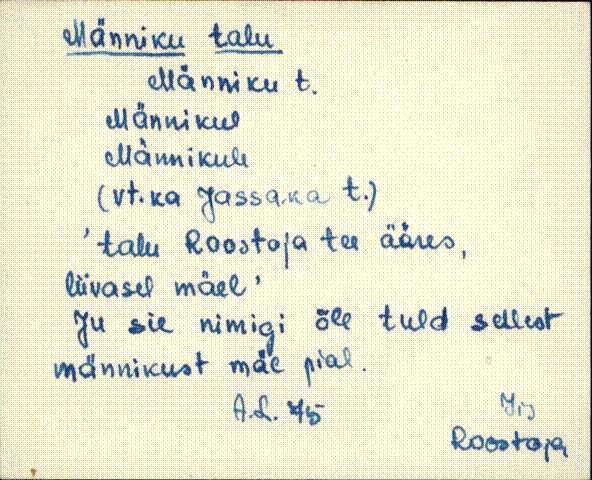 Männiku talu
Männiku t.
Männikul
Männikule
(vt. ka Jassaka t.)
'talu Roostoja tee ääres,
liivasel mäel'
Ju sie nimigi õle tuld sellest
männikust mäe pial.
A.L. 75
Iis
Roostoja